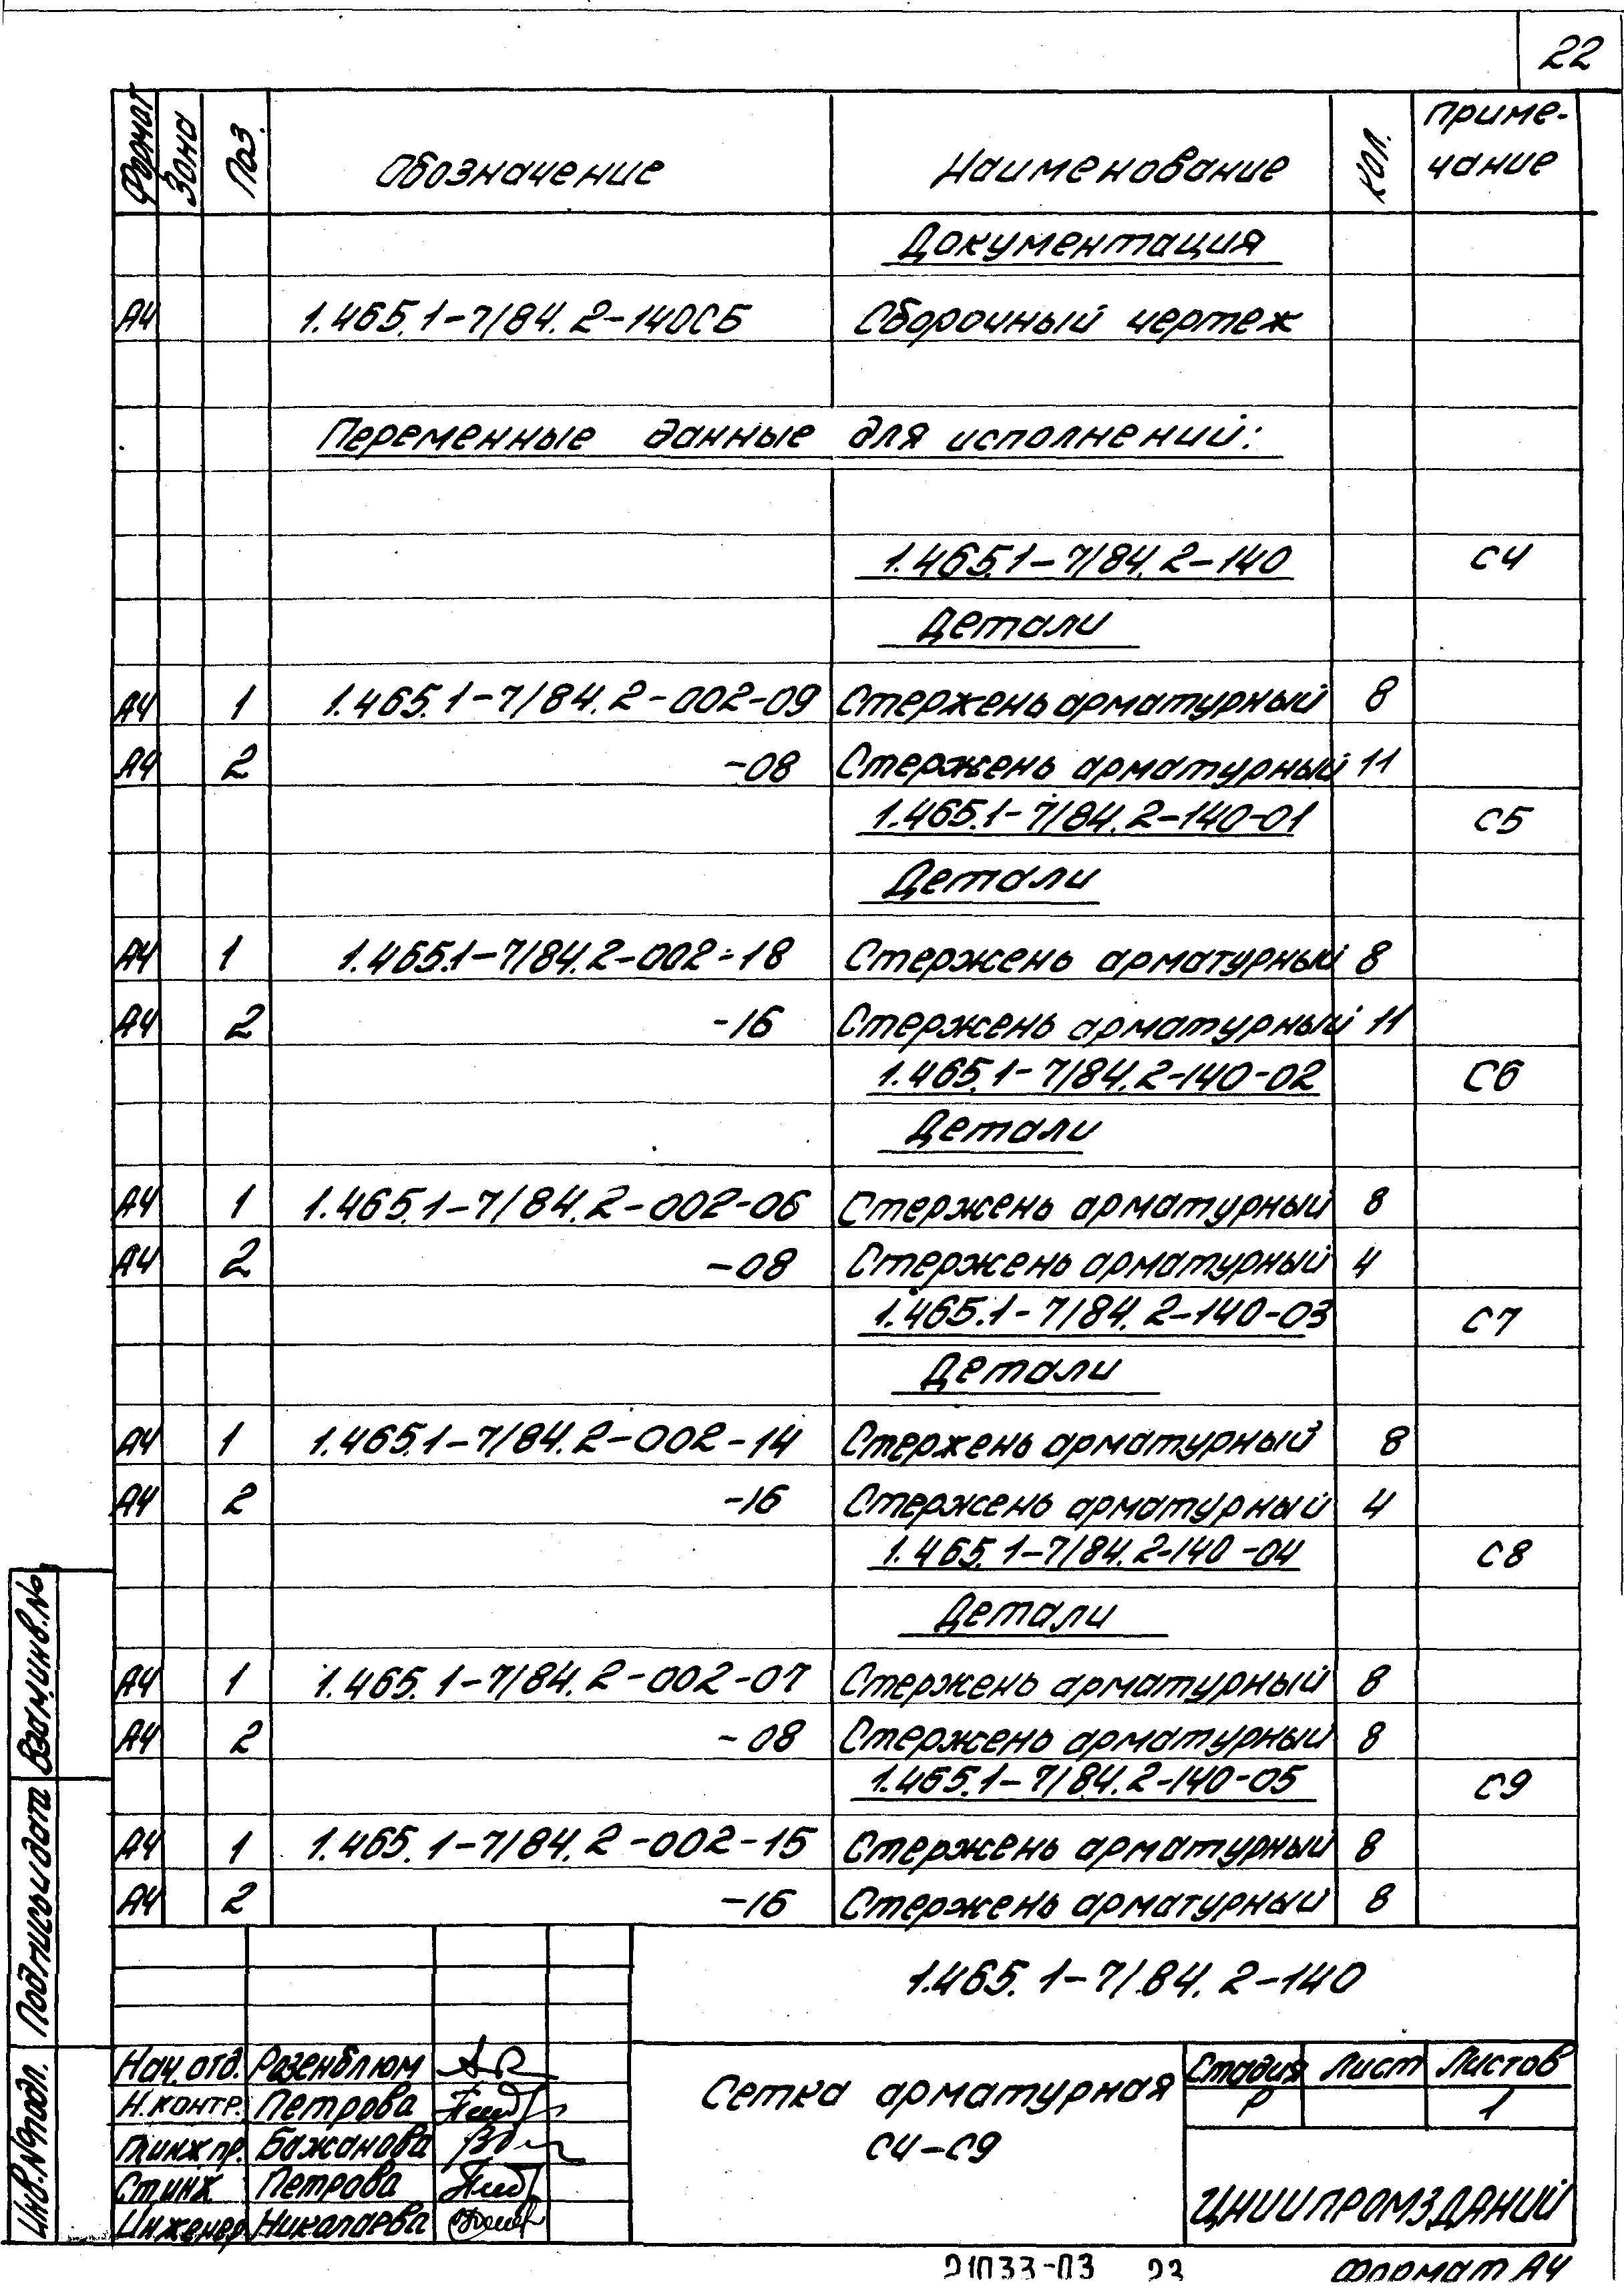 22
Формат Зона Поз. Обозначение Наименование Кол. Приме-
чание
Документация
А4 1.465.1-7/84.2-140СБ Сборочный чертеж
Переменные данные для исполнений:
1.465.1-7/84.2-140 С4
Детали
А4 1 1.465.1-7/84.2-002-09 Стержень арматурный 8
А4 2 -08 Стержень арматурный 11
1.465.1-7/84.2-140-01 С5
Детали
А4 1 1.465.1-7/84.2-002-18 Стержень арматурный 8
А4 2 -16 Стержень арматурный 11
1.465.1-7/84.2-140-02 С6
Детали
А4 1 1.465.1-7/84.2-002-06 Стержень арматурный 8
А4 2 -08 Стержень арматурный 4
1.465.1-7/84.2-140-03 С7
Детали
А4 1 1.465.1-7/84.2-002-14 Стержень арматурный 8
А4 2 -16 Стержень арматурный 4
1.465.1-7/84.2-140-04 С8
Детали
А4 1 1.465.1-7/84.2-002-07 Стержень арматурный 8
А4 2 -08 Стержень арматурный 8
1.465.1-7/84.2-140-05 С9
А4 1 1.465.1-7/84.2-002-15 Стержень арматурный 8
А4 2 -16 Стержень арматурный 8
Взам.инв.№
Подпись и дата
Инв.№ подл.
1.465.1-7/84.2-140
Нач.отд. Розенблюм
Н.контр. Петрова
Гл.инж.пр. Бажанова
Ст.инж. Петрова
Инженер Николаева
Сетка арматурная
С4-С9
Стадия Лист Листов
Р 1
ЦНИИПРОМЗДАНИЙ
21033-03 23 Формат А4